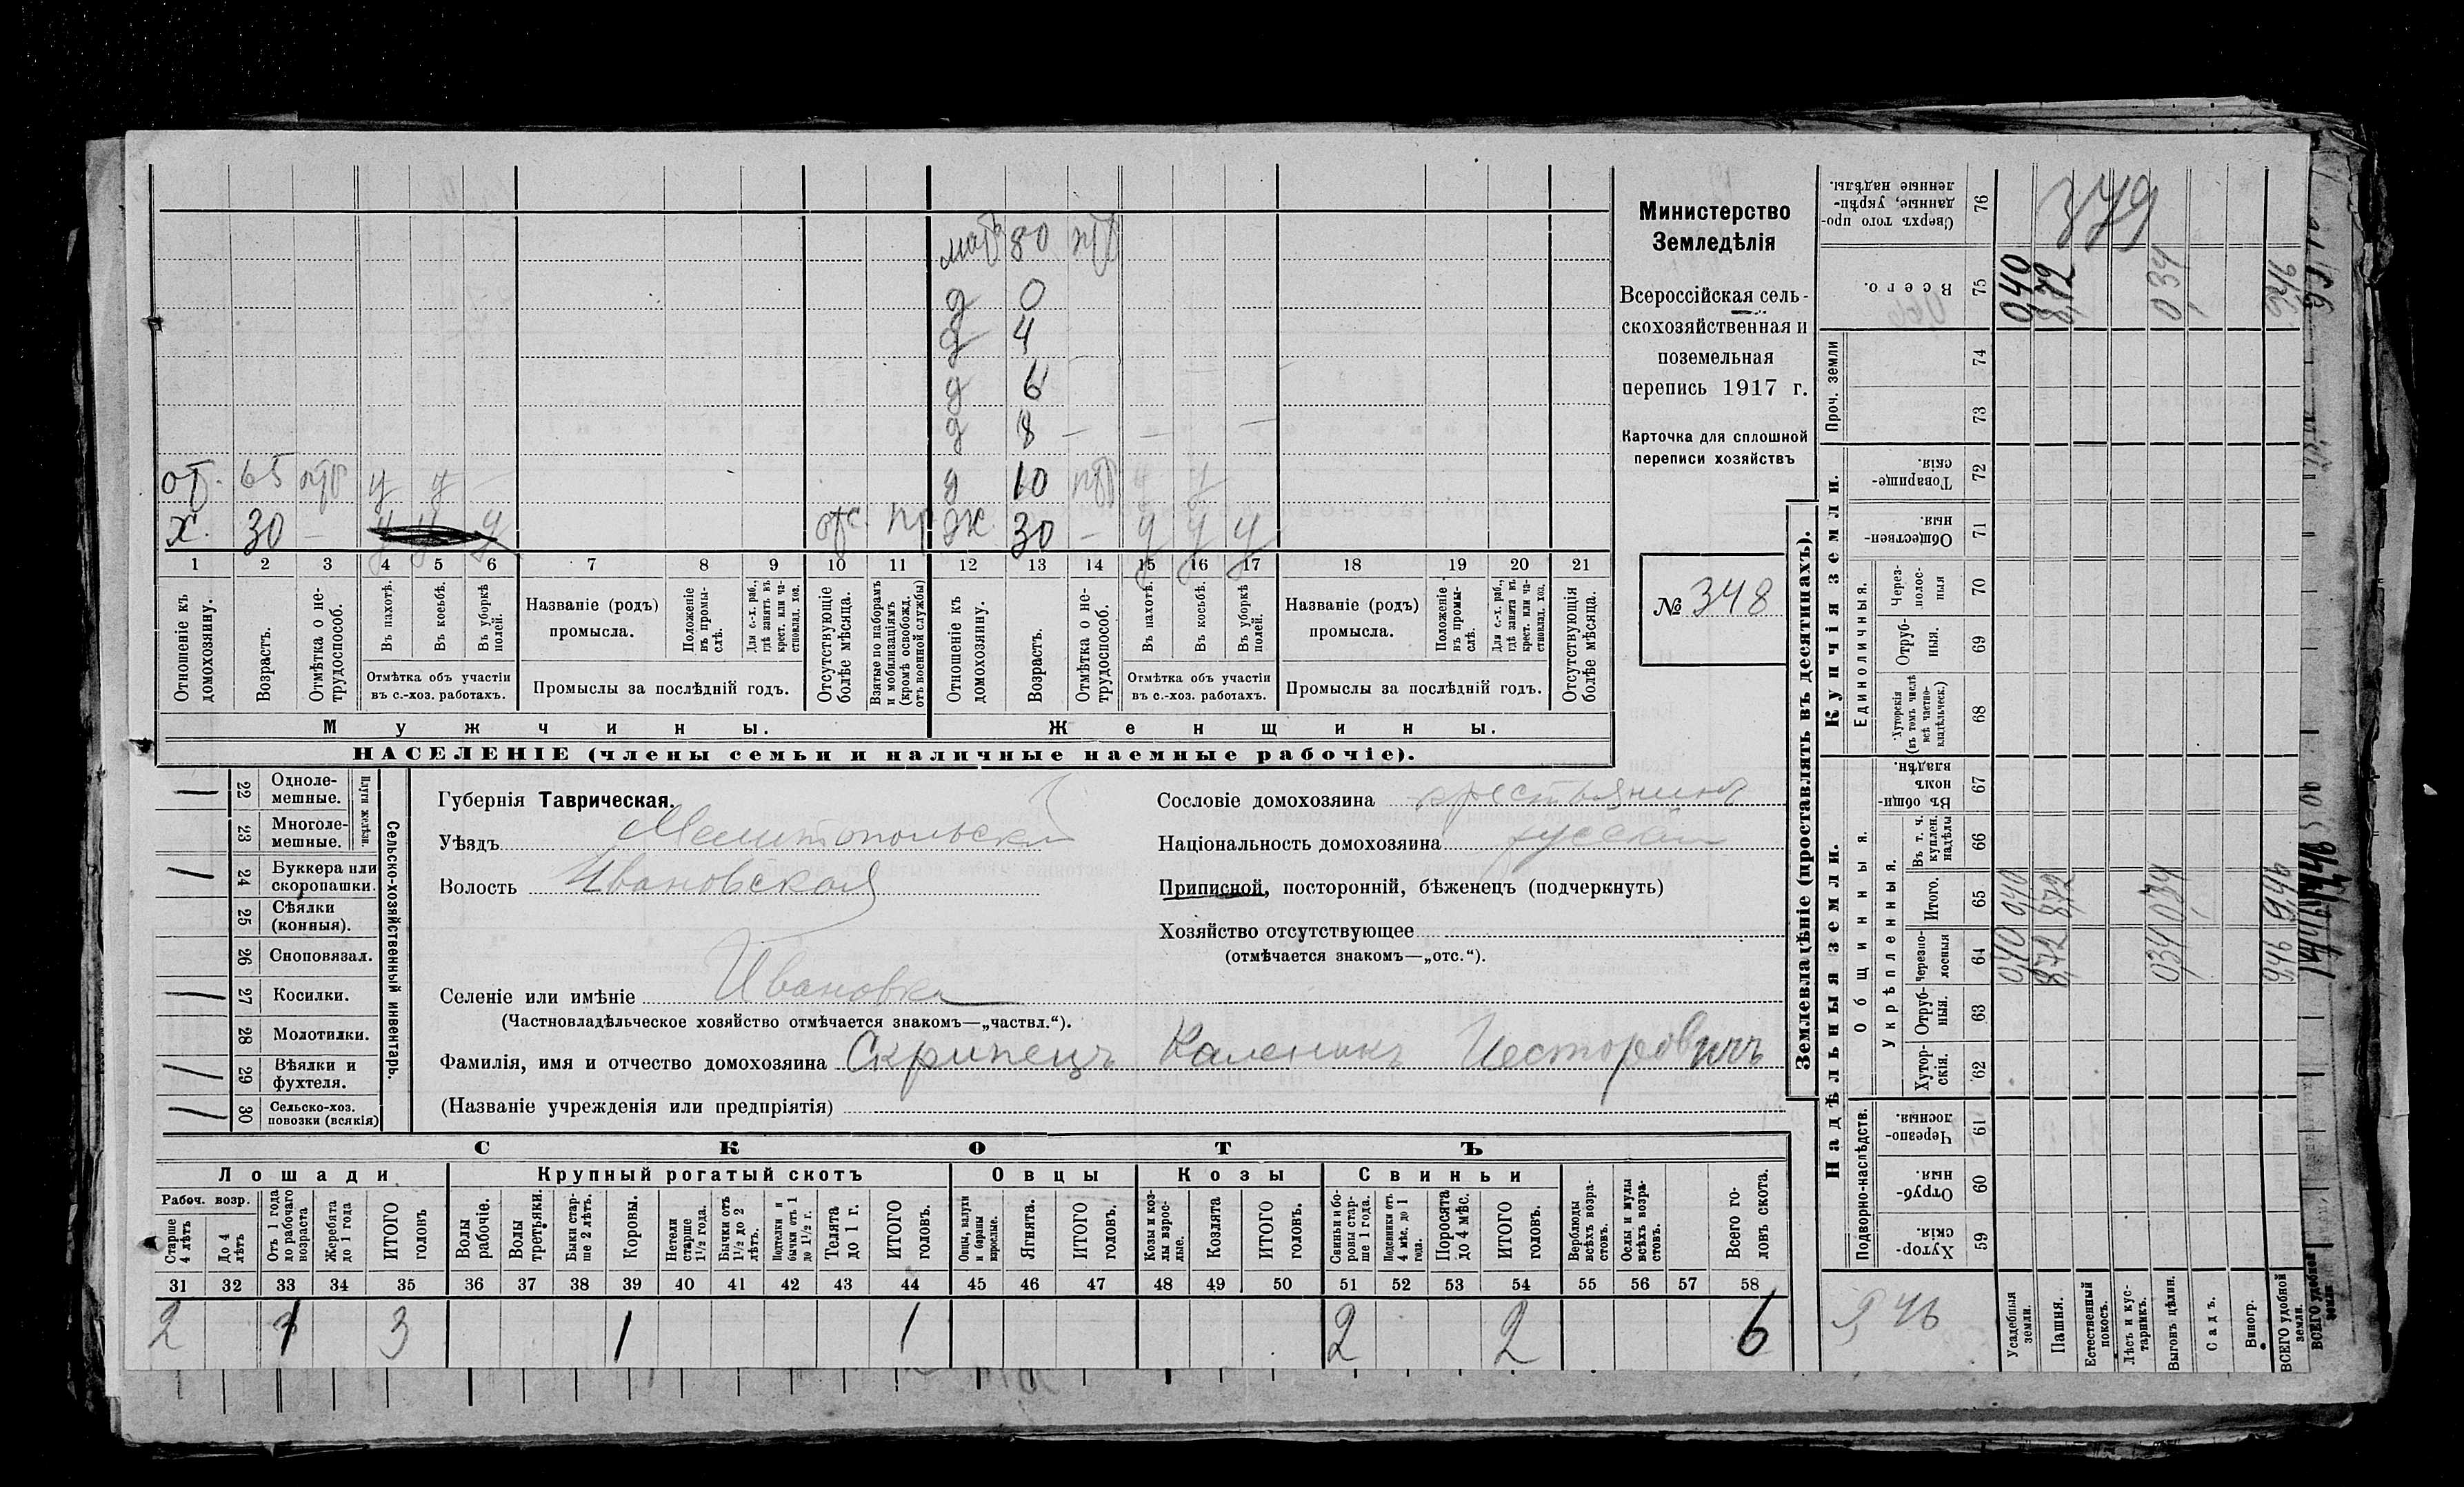 мать 80 нтр
д 0
д 4
д 6
д 8 — — —
от. 65 нтр у у — д 10 нтр у у
х. 30 — у у у отс. пр ж. 30 — у у у
1 2 3 4 5 6 7 8 9 10 11 12 13 14 15 16 17 18 19 20 21
Отношеніе къ домохозяину.
Возрастъ.
Отмѣтка о не-трудоспособ.
Въ пахотѣ.
Въ косьбѣ.
Въ уборкѣ полей.
Отмѣтка объ участіи въ с.-хоз. работахъ.
Названіе (родъ) промысла.
Положеніе въ промы-слѣ.
Для с.-х. раб., гдѣ занятъ въ крест. или ча-стновлад. хоз.
Промыслы за послѣдній годъ.
Отсутствующіе болѣе мѣсяца.
Взятые по наборамъ и мобилизаціямъ (кромѣ освобожд. отъ военной службы)
Отношеніе къ домохозяину.
Возрастъ.
Отмѣтка о не-трудоспособ.
Въ пахотѣ.
Въ косьбѣ.
Въ уборкѣ полей.
Отмѣтка объ участіи въ с.-хоз. работахъ.
Названіе (родъ) промысла.
Положеніе въ промы-слѣ.
Для с.-х. раб., гдѣ занята въ крест. или ча-стновлад. хоз.
Промыслы за послѣдній годъ.
Отсутствующія болѣе мѣсяца.
Мужчины.
Женщины.
НАСЕЛЕНІЕ (члены семьи и наличные наемные рабочіе).
Министерство
Земледѣлія
Всероссійская сель-
скохозяйственная и
поземельная
перепись 1917 г.
Карточка для сплошной
переписи хозяйствъ
№ 348
22 Одноле-мешные.
23 Многоле-мешные.
Плуги желѣзн.
24 Буккера или скоропашки.
25 Сѣялки (конныя).
26 Сноповязал.
27 Косилки.
28 Молотилки.
29 Вѣялки и фухтеля.
30 Сельско-хоз. повозки (всякія)
Сельско-хозяйственный инвентарь.
Губернія Таврическая.
Уѣздъ Мелитопольскій
Волость Ивановская
Селеніе или имѣніе Ивановка
(Частновладѣльческое хозяйство отмѣчается знакомъ—„частвл.“).
Сословіе домохозяина крестьянинъ
Національность домохозяина русскій
Приписной, посторонній, бѣженецъ (подчеркнуть)
Хозяйство отсутствующее
(отмѣчается знакомъ—„отс.“).
Фамилія, имя и отчество домохозяина Скрипецъ Каленикъ Несторовичъ
(Названіе учрежденія или предпріятія)
СКОТЪ
Лошади
Крупный рогатый скотъ
Овцы
Козы
Свиньи
Рабоч. возр.
Старше 4 лѣтъ
До 4 лѣтъ
Отъ 1 года до рабочаго возраста
Жеребята до 1 года
ИТОГО головъ
Волы рабочіе.
Волы третьяки.
Быки стар-ше 2 лѣтъ.
Коровы.
Нетели старше 1½ года.
Бычки отъ 1½ до 2 лѣтъ.
Подтелки и бычки отъ 1 до 1½ г.
Телята до 1 г.
ИТОГО головъ.
Овцы, валухи и бараны взрослые.
Ягнята.
ИТОГО головъ.
Козы и коз-лы взрос-лые.
Козлята
ИТОГО головъ.
Свиньи и бо-ровы стар-ше 1 года.
Подсвинки отъ 4 мѣс. до 1 года.
Поросята до 4 мѣс.
ИТОГО головъ.
Верблюды всѣхъ возра-стовъ.
Ослы и мулы всѣхъ возра-стовъ.
Всего го-ловъ скота.
31 32 33 34 35 36 37 38 39 40 41 42 43 44 45 46 47 48 49 50 51 52 53 54 55 56 57 58
2 1 3 1 1 2 2 6
Землевладѣніе (проставлять въ десятинахъ).
Надѣльныя земли.
Купчія земли.
Проч. земли
Подворно-наслѣдств.
Общинныя.
Укрѣпленныя.
Единоличныя.
59 Хутор-скія.
60 Отруб-ныя.
61 Черезпо-лосныя.
62 Хутор-скія.
63 Отруб-ныя.
64 Черезпо-лосныя
65 Итого.
66 Въ т. ч. куплен. надѣлы
67 Въ общи-номъ владѣн.
68 Хуторскія (въ томъ числѣ всѣ частно-владѣльческ.)
69 Отруб-ныя.
70 Через-полос-ныя
71 Обществен-ныя.
72 Товарище-скія.
73
74
75 Всего.
76 Сверхъ того про-данные, укрѣп-ленные надѣлы.
Усадебныя земли.
Пашня.
Естественный покосъ.
Лѣсъ и кус-тарникъ.
Выгонъ цѣлин.
Садъ.
Виногр.
ВСЕГО удобной земли.
9,46
0,40 0,40 0,40
8,72 8,72 8,72
0,34 0,34 0,34
9,46 9,46 9,46
379
ВСЕГО удобной земли